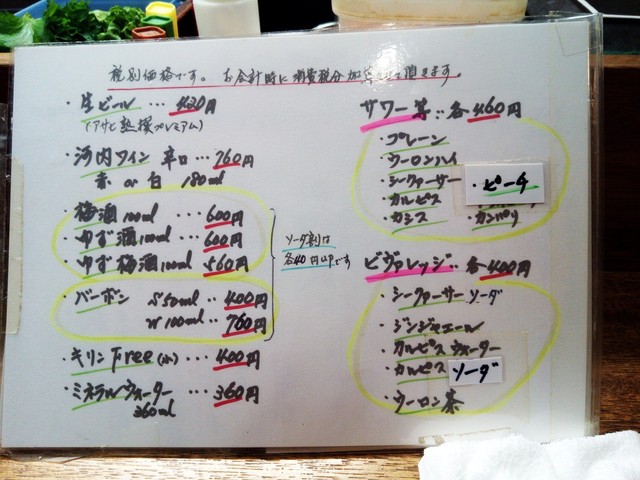 税別価格です。お会計時に消費税分加算させて頂きます。
・生ビール … 420円
(アサヒ熟撰プレミアム)
・河内ワイン 辛口 … 760円
赤 or 白 180ml
・梅酒100ml … 600円
・ゆず酒100ml … 600円
・ゆず梅酒100ml … 560円
・バーボン S 50ml … 400円
W 100ml … 760円
ソーダ割は
各40円UPです
・キリンFree(小) … 400円
・ミネラルウォーター … 360円
360ml
サワー等 : 各460円
・プレーン
・ウーロンハイ
・シークァーサー
・ピーチ
・カルピス
・カシス
・カンパリ
ビヴァレッジ : 各400円
・シークァーサーソーダ
・ジンジャエール
・カルピスウォーター
・カルピスソーダ
・ウーロン茶